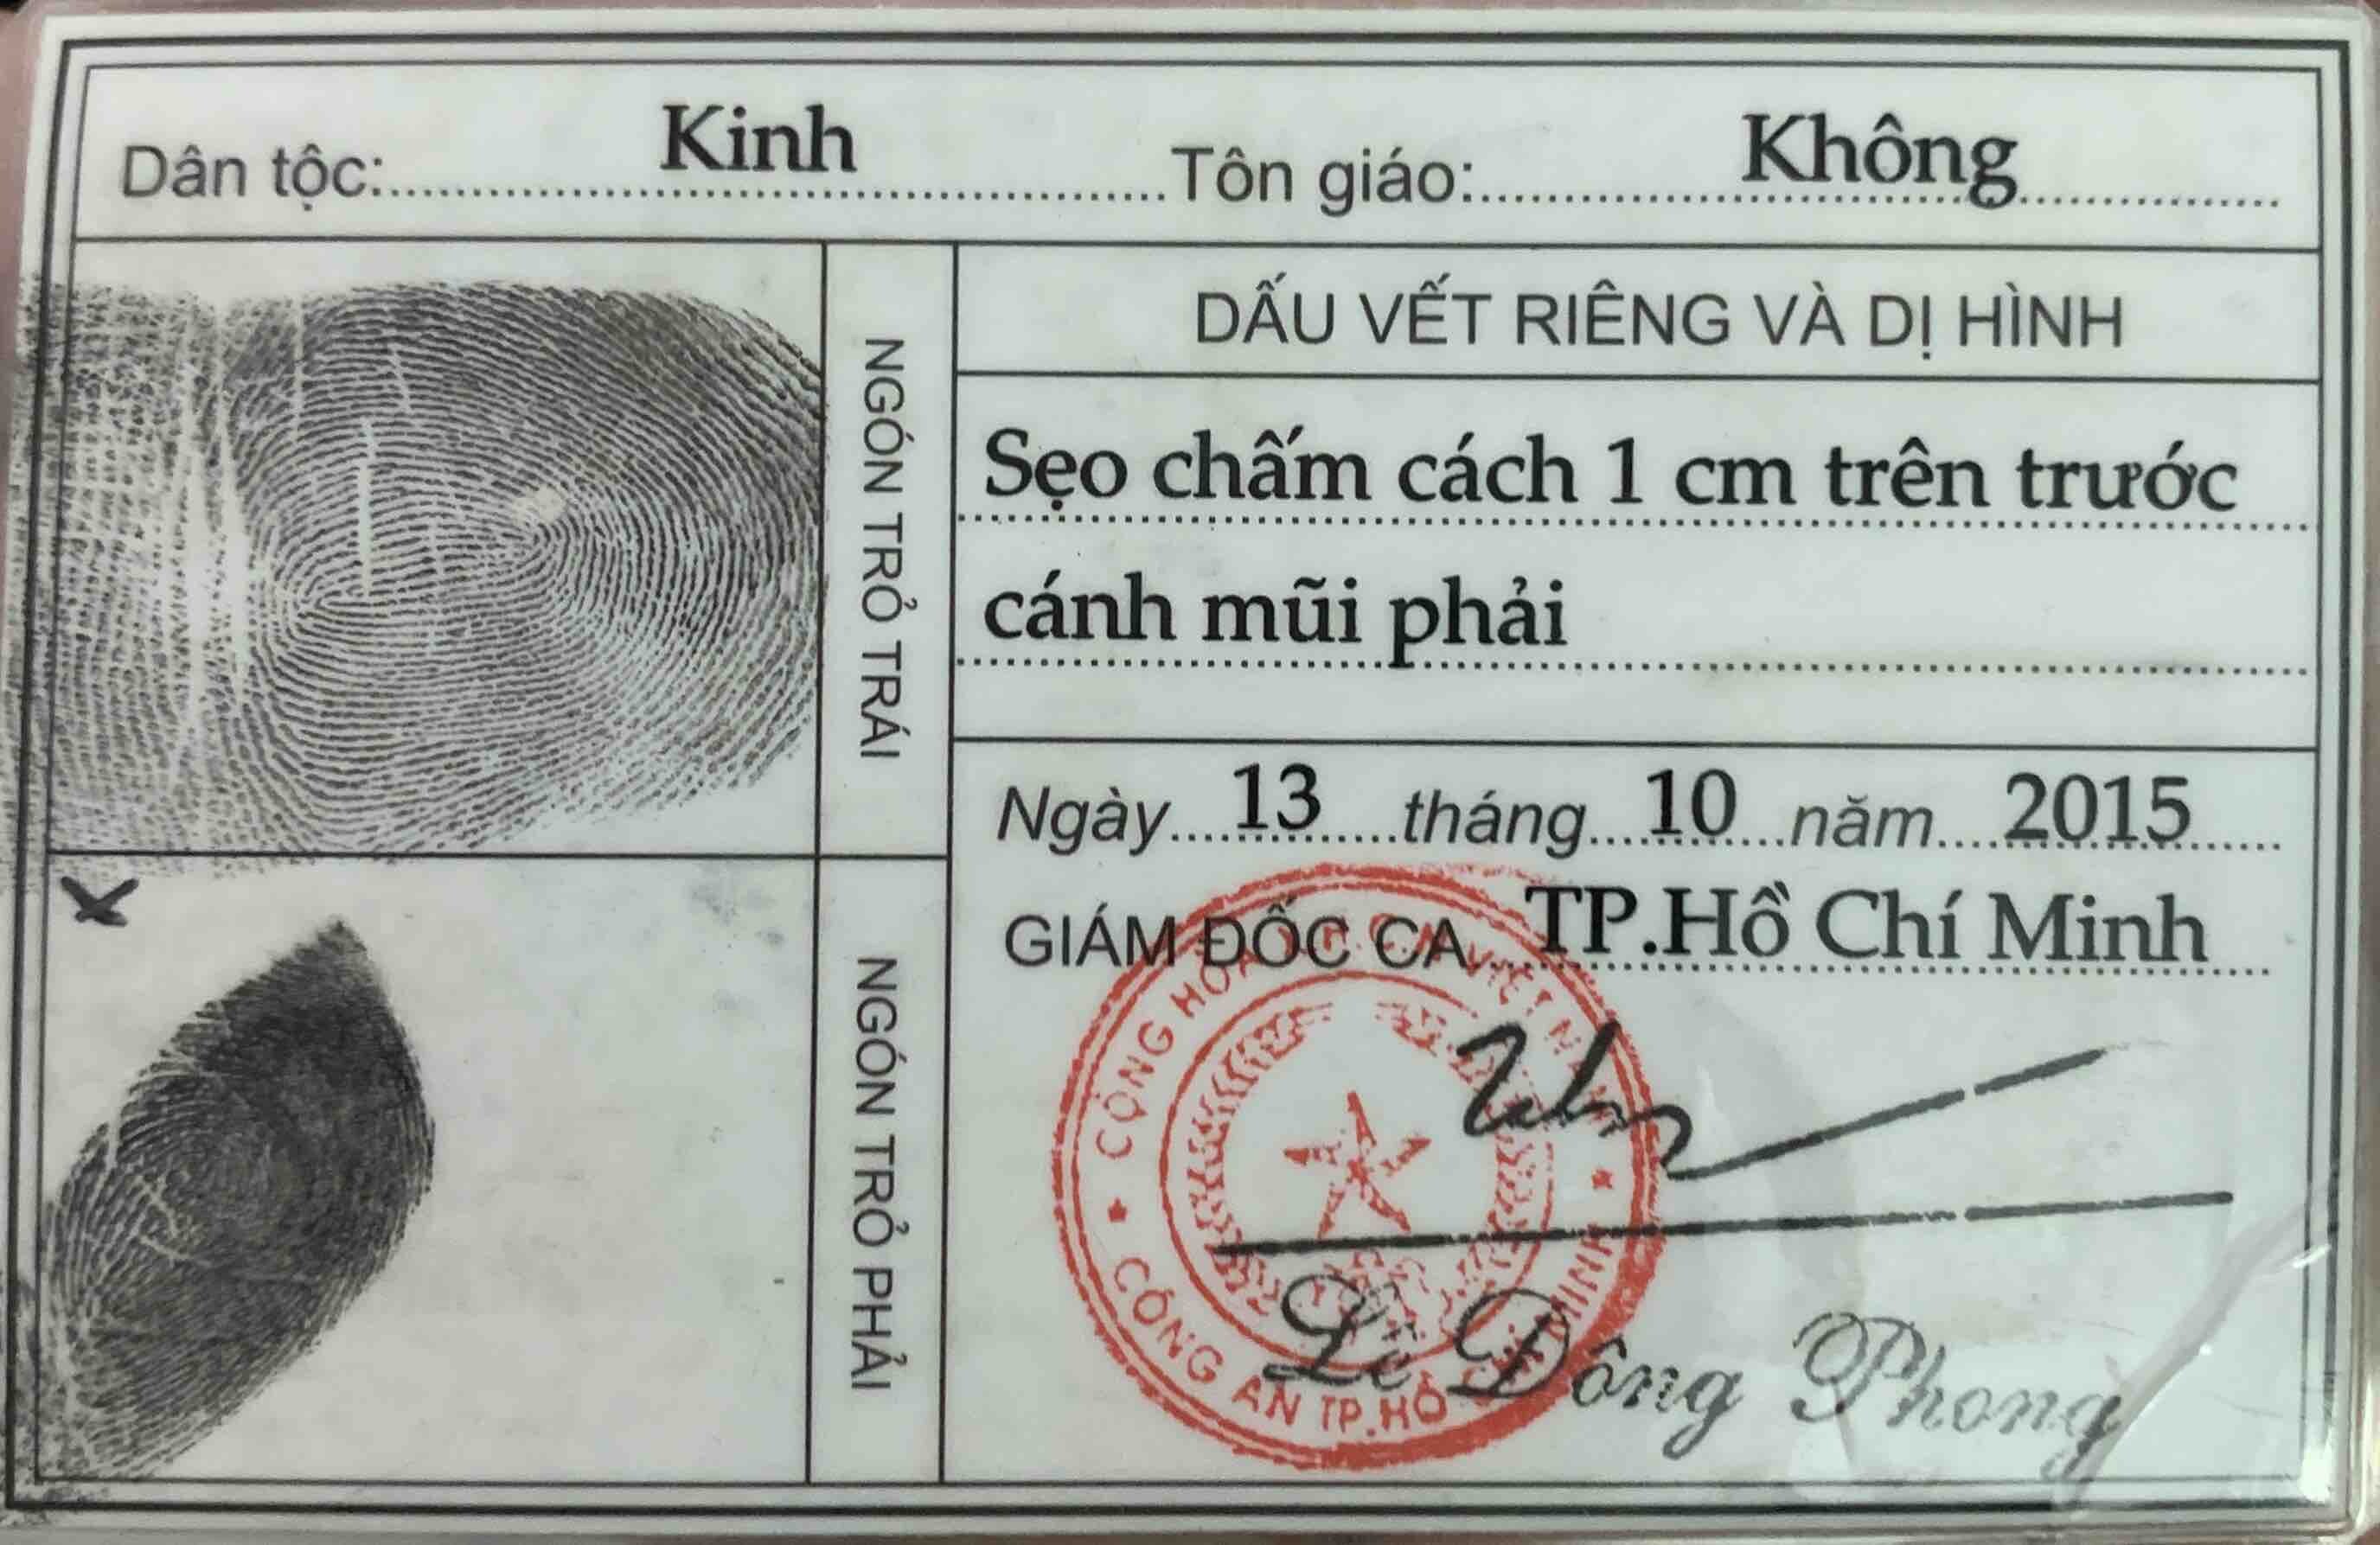 Dân tộc: Kinh Tôn giáo: Không
NGÓN TRỎ TRÁI
DẤU VẾT RIÊNG VÀ DỊ HÌNH
Sẹo chấm cách 1 cm trên trước
cánh mũi phải
Ngày 13 tháng 10 năm 2015
GIÁM ĐỐC CA TP.Hồ Chí Minh
NGÓN TRỎ PHẢI
CỘNG HÒA VIỆT NAM
CÔNG AN TP.HỒ MINH
Lê Đông Phong